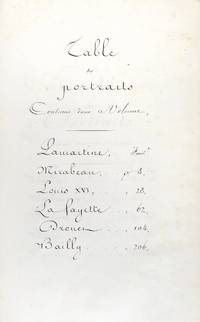 Table
des
portraits
Contenus dans ce Volume.
Lamartine,
Mirabeau . . . p 8,
Louis XVI, . . . 28,
La fayette . . , 62,
Drouet . . . , 104,
Bailly . . . . , 206,